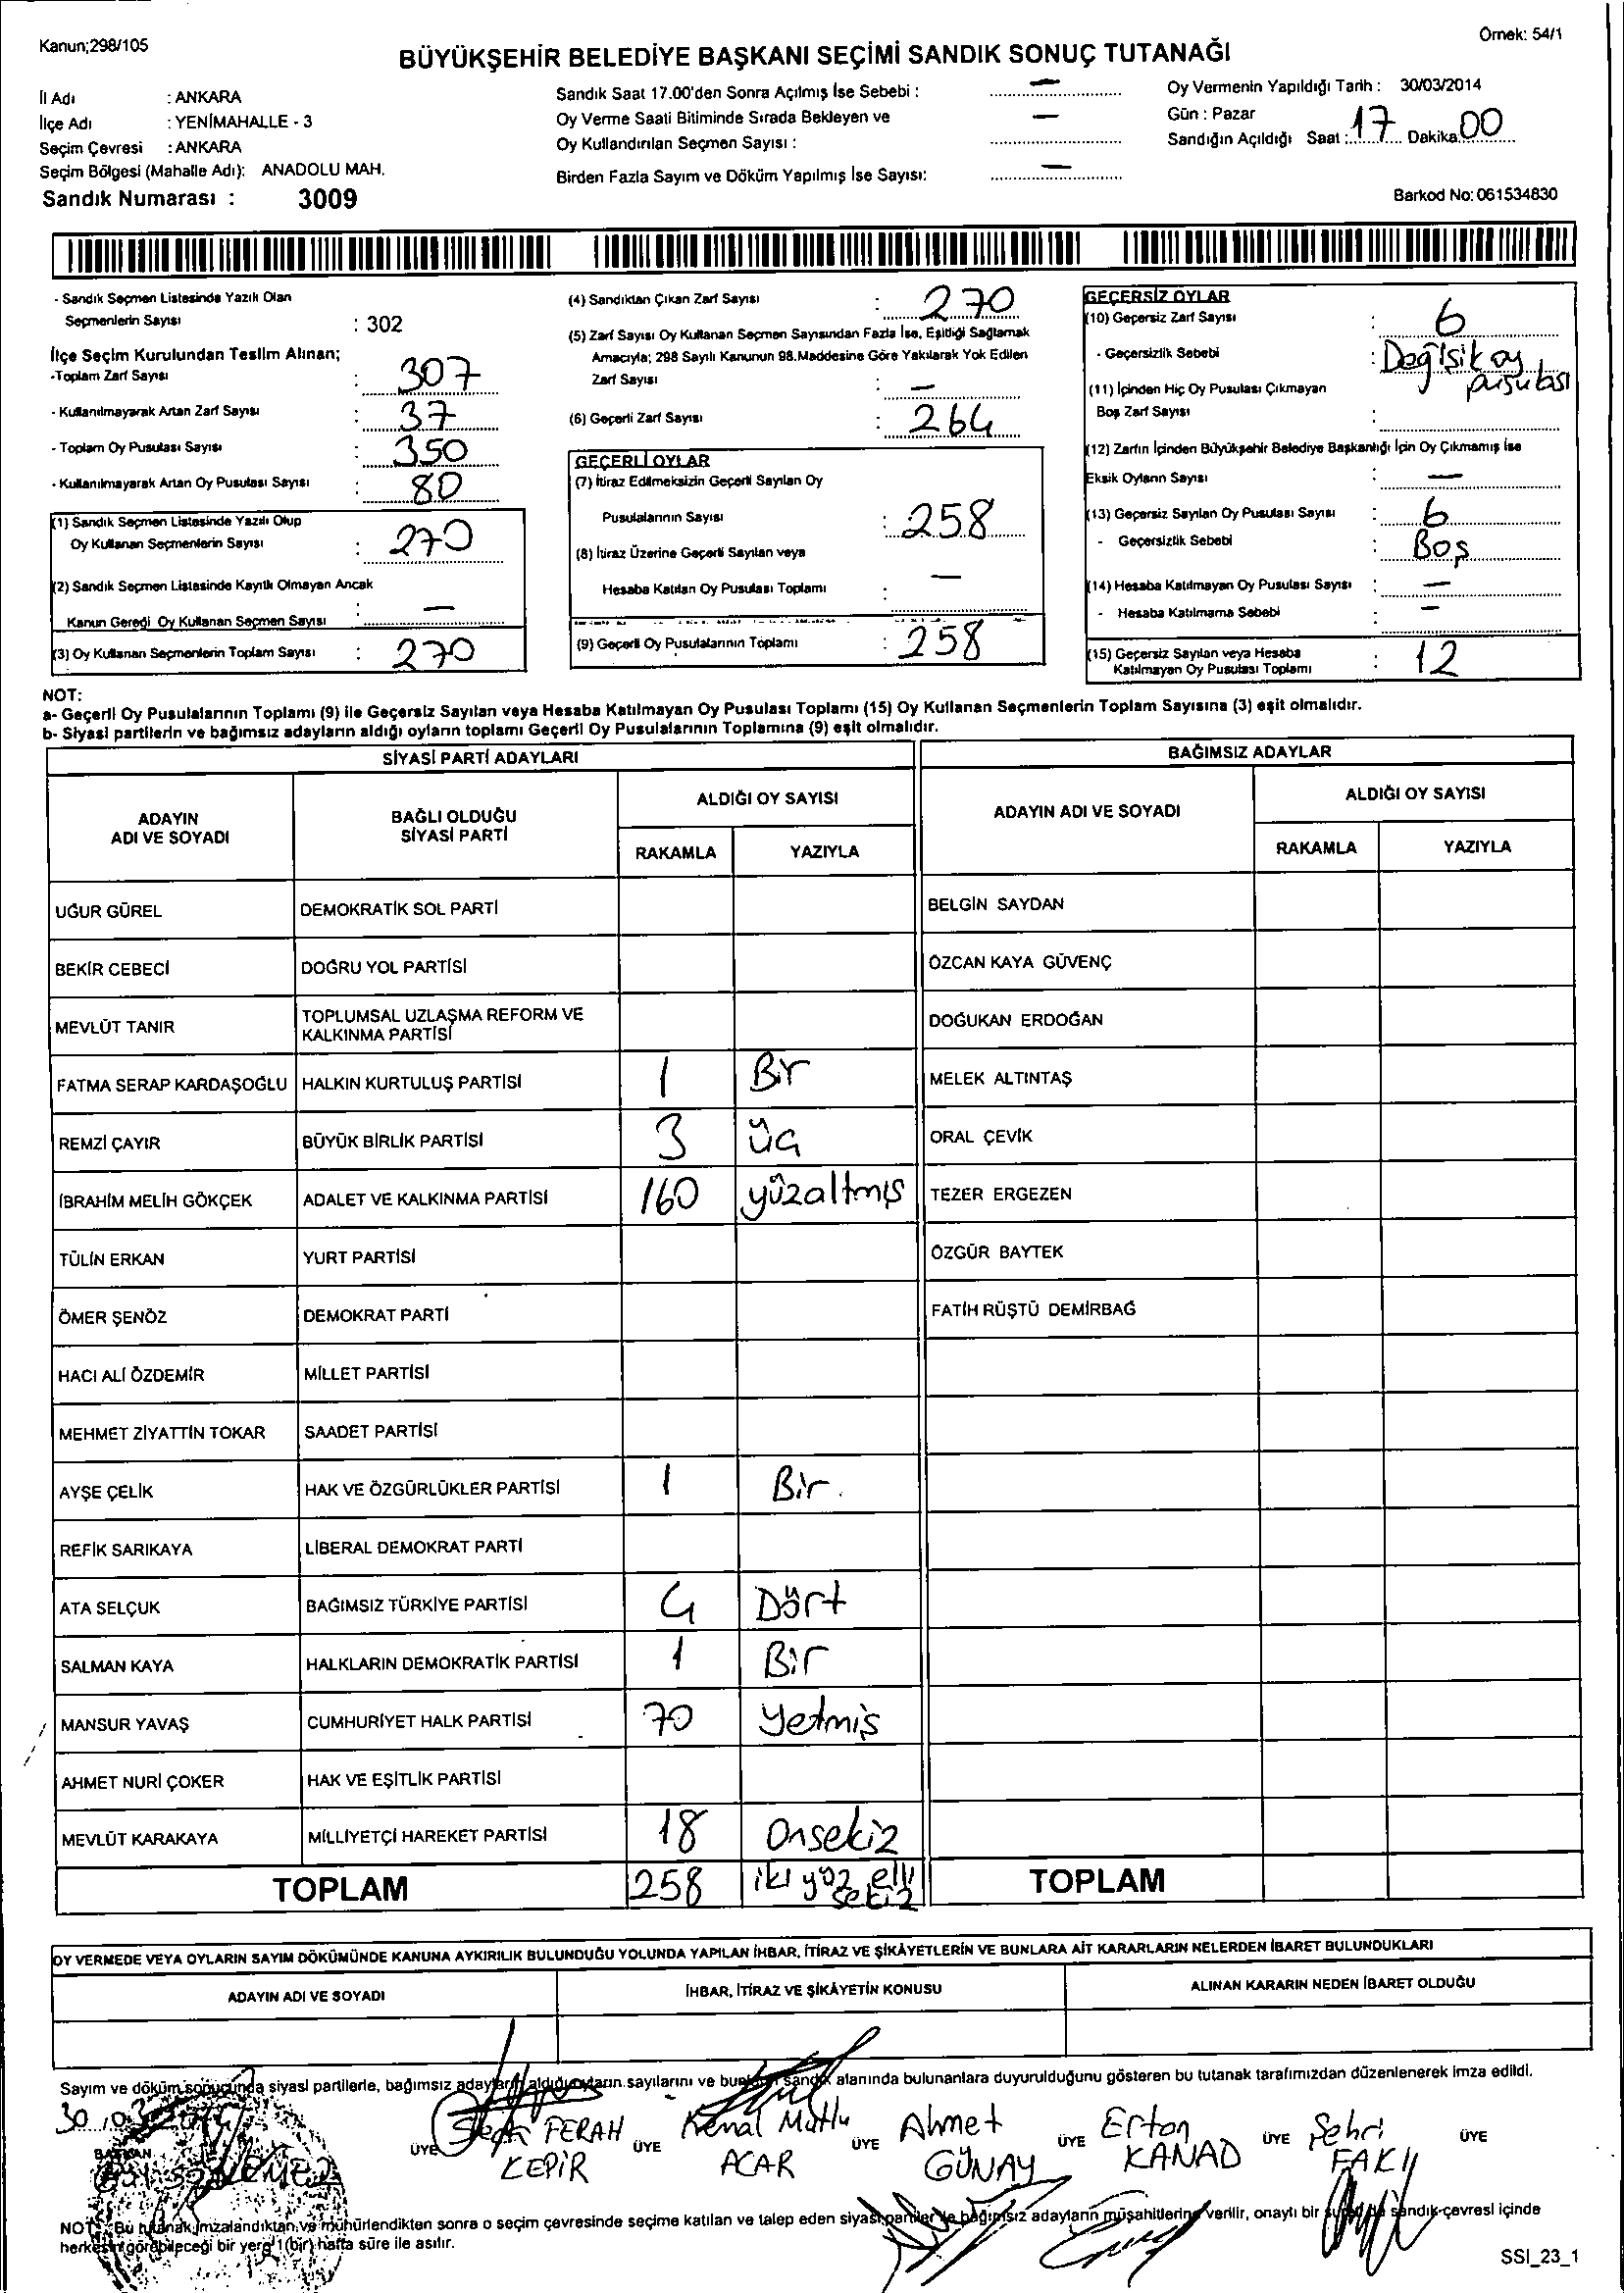 Kanun;298/105
Örnek: 54/1
BÜYÜKŞEHİR BELEDİYE BAŞKANI SEÇİMİ SANDIK SONUÇ TUTANAĞI
İl Adı : ANKARA
İlçe Adı : YENİMAHALLE - 3
Seçim Çevresi : ANKARA
Seçim Bölgesi (Mahalle Adı): ANADOLU MAH.
Sandık Numarası : 3009
Sandık Saat 17.00'den Sonra Açılmış İse Sebebi : —
Oy Verme Saati Bitiminde Sırada Bekleyen ve
Oy Kullandırılan Seçmen Sayısı : —
Birden Fazla Sayım ve Döküm Yapılmış İse Sayısı: —
Oy Vermenin Yapıldığı Tarih : 30/03/2014
Gün : Pazar
Sandığın Açıldığı Saat : 17 Dakika 00
Barkod No: 061534830
- Sandık Seçmen Listesinde Yazılı Olan
Seçmenlerin Sayısı : 302
İlçe Seçim Kurulundan Teslim Alınan;
-Toplam Zarf Sayısı : 307
- Kullanılmayarak Artan Zarf Sayısı : 37
- Toplam Oy Pusulası Sayısı : 350
- Kullanılmayarak Artan Oy Pusulası Sayısı : 80
(1) Sandık Seçmen Listesinde Yazılı Olup
Oy Kullanan Seçmenlerin Sayısı : 270
(2) Sandık Seçmen Listesinde Kayıtlı Olmayan Ancak
Kanun Gereği Oy Kullanan Seçmen Sayısı : —
(3) Oy Kullanan Seçmenlerin Toplam Sayısı : 270
(4) Sandıktan Çıkan Zarf Sayısı : 270
(5) Zarf Sayısı Oy Kullanan Seçmen Sayısından Fazla İse, Eşitliği Sağlamak
Amacıyla; 298 Sayılı Kanunun 98.Maddesine Göre Yakılarak Yok Edilen
Zarf Sayısı : —
(6) Geçerli Zarf Sayısı : 264
GEÇERLİ OYLAR
(7) İtiraz Edilmeksizin Geçerli Sayılan Oy
Pusulalarının Sayısı : 258
(8) İtiraz Üzerine Geçerli Sayılan veya
Hesaba Katılan Oy Pusulası Toplamı : —
(9) Geçerli Oy Pusulalarının Toplamı : 258
GEÇERSİZ OYLAR
(10) Geçersiz Zarf Sayısı : 6
- Geçersizlik Sebebi : Değişik oy pusulası
(11) İçinden Hiç Oy Pusulası Çıkmayan
Boş Zarf Sayısı :
(12) Zarfın İçinden Büyükşehir Belediye Başkanlığı İçin Oy Çıkmamış İse
Eksik Oyların Sayısı : —
(13) Geçersiz Sayılan Oy Pusulası Sayısı : 6
- Geçersizlik Sebebi : Boş
(14) Hesaba Katılmayan Oy Pusulası Sayısı : —
- Hesaba Katılmama Sebebi : —
(15) Geçersiz Sayılan veya Hesaba
Katılmayan Oy Pusulası Toplamı : 12
NOT:
a- Geçerli Oy Pusulalarının Toplamı (9) ile Geçersiz Sayılan veya Hesaba Katılmayan Oy Pusulası Toplamı (15) Oy Kullanan Seçmenlerin Toplam Sayısına (3) eşit olmalıdır.
b- Siyasi partilerin ve bağımsız adayların aldığı oyların toplamı Geçerli Oy Pusulalarının Toplamına (9) eşit olmalıdır.
SİYASİ PARTİ ADAYLARI
BAĞIMSIZ ADAYLAR
ADAYIN ADI VE SOYADI
BAĞLI OLDUĞU SİYASİ PARTİ
ALDIĞI OY SAYISI
RAKAMLA YAZIYLA
ADAYIN ADI VE SOYADI
ALDIĞI OY SAYISI
RAKAMLA YAZIYLA
UĞUR GÜREL DEMOKRATİK SOL PARTİ BELGİN SAYDAN
BEKİR CEBECİ DOĞRU YOL PARTİSİ ÖZCAN KAYA GÜVENÇ
MEVLÜT TANIR TOPLUMSAL UZLAŞMA REFORM VE KALKINMA PARTİSİ DOĞUKAN ERDOĞAN
FATMA SERAP KARDAŞOĞLU HALKIN KURTULUŞ PARTİSİ 1 Bir MELEK ALTINTAŞ
REMZİ ÇAYIR BÜYÜK BİRLİK PARTİSİ 3 üç ORAL ÇEVİK
İBRAHİM MELİH GÖKÇEK ADALET VE KALKINMA PARTİSİ 160 yüzaltmış TEZER ERGEZEN
TÜLİN ERKAN YURT PARTİSİ ÖZGÜR BAYTEK
ÖMER ŞENÖZ DEMOKRAT PARTİ FATİH RÜŞTÜ DEMİRBAĞ
HACI ALİ ÖZDEMİR MİLLET PARTİSİ
MEHMET ZİYATTİN TOKAR SAADET PARTİSİ
AYŞE ÇELİK HAK VE ÖZGÜRLÜKLER PARTİSİ 1 Bir.
REFİK SARIKAYA LİBERAL DEMOKRAT PARTİ
ATA SELÇUK BAĞIMSIZ TÜRKİYE PARTİSİ 4 Dört
SALMAN KAYA HALKLARIN DEMOKRATİK PARTİSİ 1 Bir
MANSUR YAVAŞ CUMHURİYET HALK PARTİSİ 70 Yetmiş
AHMET NURİ ÇÖKER HAK VE EŞİTLİK PARTİSİ
MEVLÜT KARAKAYA MİLLİYETÇİ HAREKET PARTİSİ 18 Onsekiz
TOPLAM 258 iki yüz elli sekiz TOPLAM
OY VERMEDE VEYA OYLARIN SAYIM DÖKÜMÜNDE KANUNA AYKIRILIK BULUNDUĞU YOLUNDA YAPILAN İHBAR, İTİRAZ VE ŞİKAYETLERİN VE BUNLARA AİT KARARLARIN NELERDEN İBARET BULUNDUKLARI
ADAYIN ADI VE SOYADI İHBAR, İTİRAZ VE ŞİKAYETİN KONUSU ALINAN KARARIN NEDEN İBARET OLDUĞU
Sayım ve döküm sonucunda siyasi partilerle, bağımsız adayların aldığı oyların sayılarını ve bunların sandık alanında bulunanlara duyurulduğunu gösteren bu tutanak tarafımızdan düzenlenerek imza edildi.
BAŞKAN
ÜYE FERAH KEPİR
ÜYE Kenal Mutlu ACAR
ÜYE Ahmet GÜNAY
ÜYE Ertan KANAD
ÜYE Şehri FAKI
ÜYE
NOT: Bu tutanak imzalandıktan ve mühürlendikten sonra o seçim çevresinde seçime katılan ve talep eden siyasi partiler ile bağımsız adayların müşahitlerine verilir, onaylı bir sureti de sandık çevresi içinde
herkesin görebileceği bir yere 1 (bir) hafta süre ile asılır.
SSI_23_1